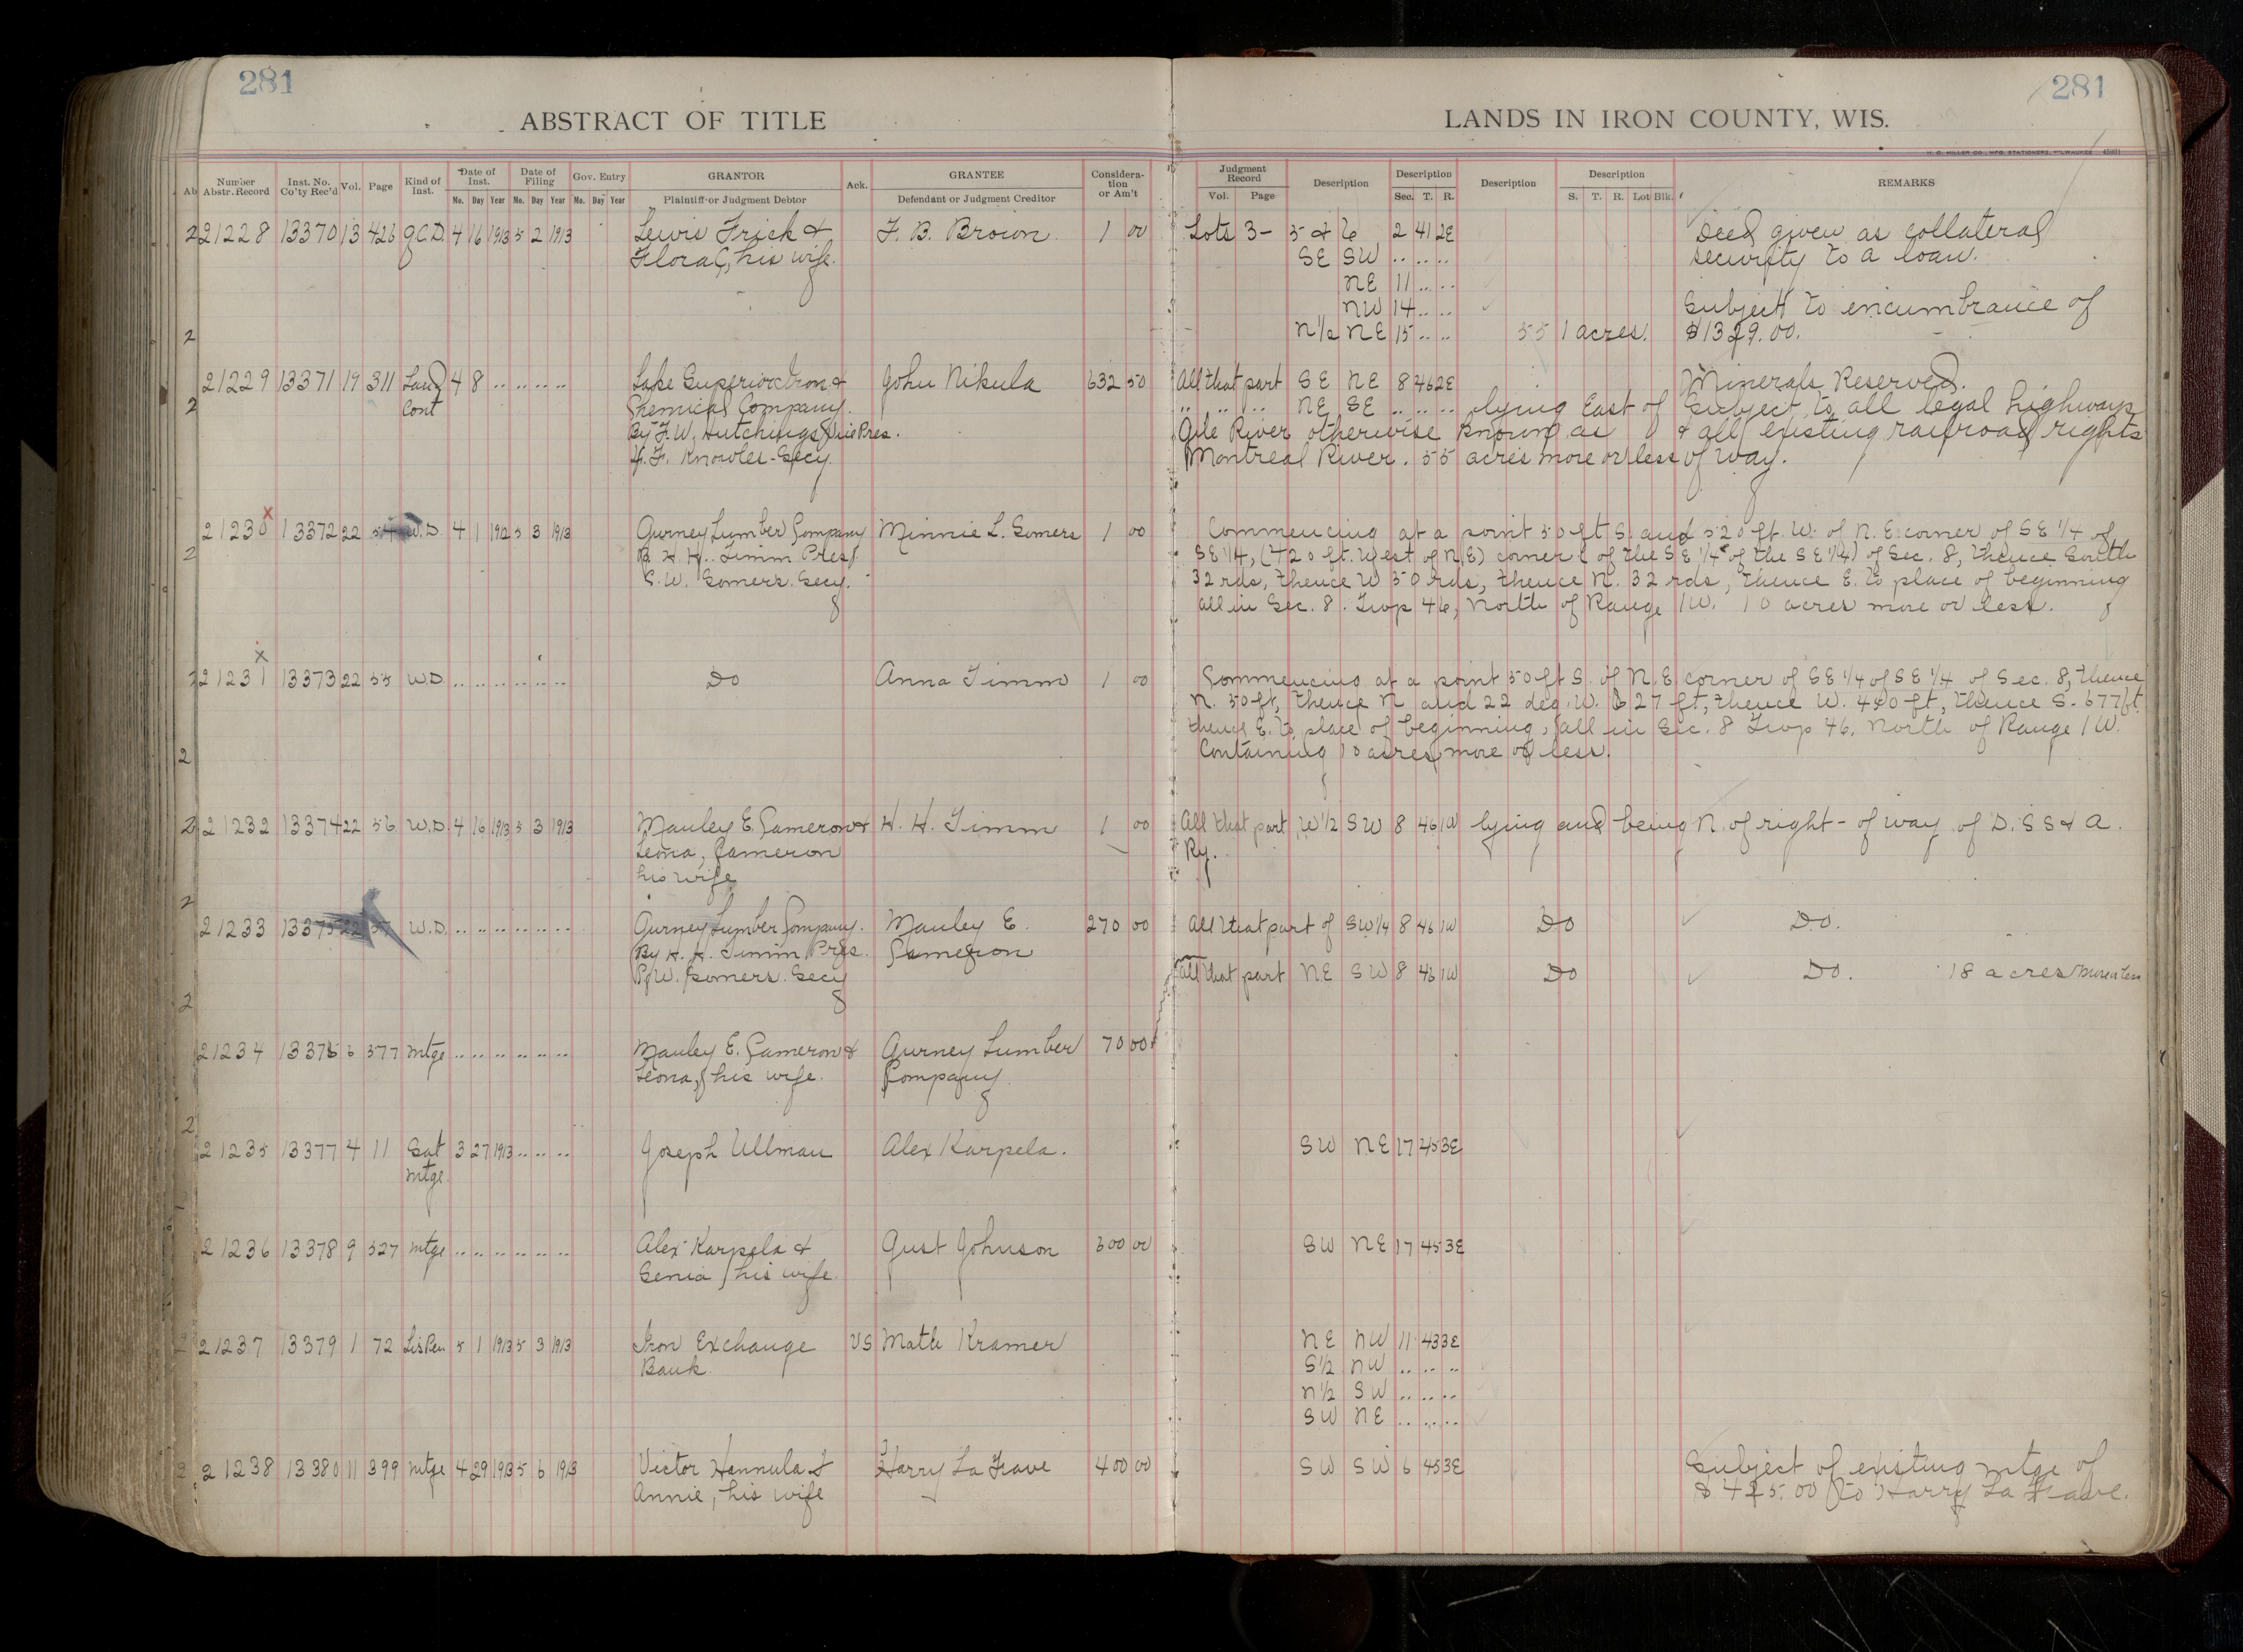 281
281
ABSTRACT OF TITLE
LANDS IN IRON COUNTY, WIS.
H. G. MILLER CO., MFG. STATIONERS, MILWAUKEE
Ab Number Abstr. Record Inst. No. Co'ty Rec'd Vol. Page Kind of Inst. Date of Inst. Date of Filing Gov. Entry GRANTOR Ack. GRANTEE Consideration or Am't Judgment Record Description Description Description Description REMARKS
No. Day Year No. Day Year No. Day Year Plaintiff or Judgment Debtor Defendant or Judgment Creditor Vol. Page Sec. T. R. S. T. R. Lot Blk.
21228 13370 13 426 Q.C.D. 4 16 1913 5 2 1913 Lewis Frick & F. B. Brown 1 00 Lots 3- 5 & 6 2 41 2E Deed given as collateral
Flora C, his wife. SE SW .. .. .. security to a loan.
NE 11 .. ..
NW 14 .. .. Subject to encumbrance of
N 1/2 NE 15 .. .. 551 acres. $1329.00.
21229 13371 19 311 Land 4 8 .. .. .. .. Lake Superior Iron & John Nikula 632 50 All that part SE NE 8 46 2E Minerals Reserved.
Cont Chemical Company. .. .. .. NE SE .. .. .. lying East of Subject to all legal highways
By F. W. Hutchings Vice Pres. Gile River otherwise known as & all existing railroad rights
H. F. Knowles - Secy. Montreal River. 55 acres more or less of way.
21230 x 13372 22 54 W.D. 4 1 1912 5 3 1913 Gurney Lumber Company Minnie L. Somers 1 00 Commencing at a point 50 ft S. and 520 ft. W. of N. E. corner of SE 1/4 of
B H. H. Timm Pres. SE 1/4, (720 ft. West of N.E) corner of the SE 1/4 of the SE 1/4) of Sec. 8, thence South
S. W. Somers. Secy. 32 rds, thence W 50 rds, thence N. 32 rds, thence E. to place of beginning
all in Sec. 8. Twp 46, North of Range 1W. 10 acres more or less.
x
21231 13373 22 55 W.D. .. .. .. .. .. .. Do Anna Timm 1 00 Commencing at a point 50 ft S. of N.E. corner of SE 1/4 of SE 1/4 of Sec. 8, thence
N. 50 ft, thence N and 22 deg. W. 627 ft, thence W. ft, thence S. 677 ft.
thence E. to place of beginning, all in Sec. 8 Twp 46, North of Range 1W.
Containing 10 acres more or less.
21232 13374 22 56 W.D. 4 16 1913 5 3 1913 Manley E. Cameron & H. H. Timm 1 00 All that part W 1/2 SW 8 46 1W lying and being N. of right-of way of D. S S & A.
Leona, Cameron Ry.
his wife
21233 13375 22 57 W.D. .. .. .. .. .. .. Gurney Lumber Company. Manley E. 270 00 All that part of SW 1/4 8 46 1W Do Do.
By H. H. Timm Pres. Cameron
W. Somers. Secy All that part NE SW 8 46 1W Do Do. 18 acres more or less
21234 13376 6 377 Mtge .. .. .. .. .. .. Manley E. Cameron & Gurney Lumber 70 00
Leona, his wife. Company.
21235 13377 4 11 Sat 3 27 1913 .. .. .. Joseph Ullman Alex Karpela. SW NE 17 45 3E
Mtge.
21236 13378 9 527 Mtge .. .. .. .. .. .. Alex Karpela & Gust Johnson 300 00 SW NE 17 45 3E
Senia his wife.
21237 13379 1 72 Lis Pen 5 1 1913 5 3 1913 Iron Exchange VS Math Kramer NE NW 11 43 3E
Bank. S 1/2 NW .. .. ..
N 1/2 SW .. .. ..
SW NE .. .. ..
21238 13380 11 399 Mtge 4 29 1913 5 6 1913 Victor Hannula & Harry La Frave 400 00 SW SW 6 45 3E Subject of existing mtge of
Annie, his wife to Harry La Frave.